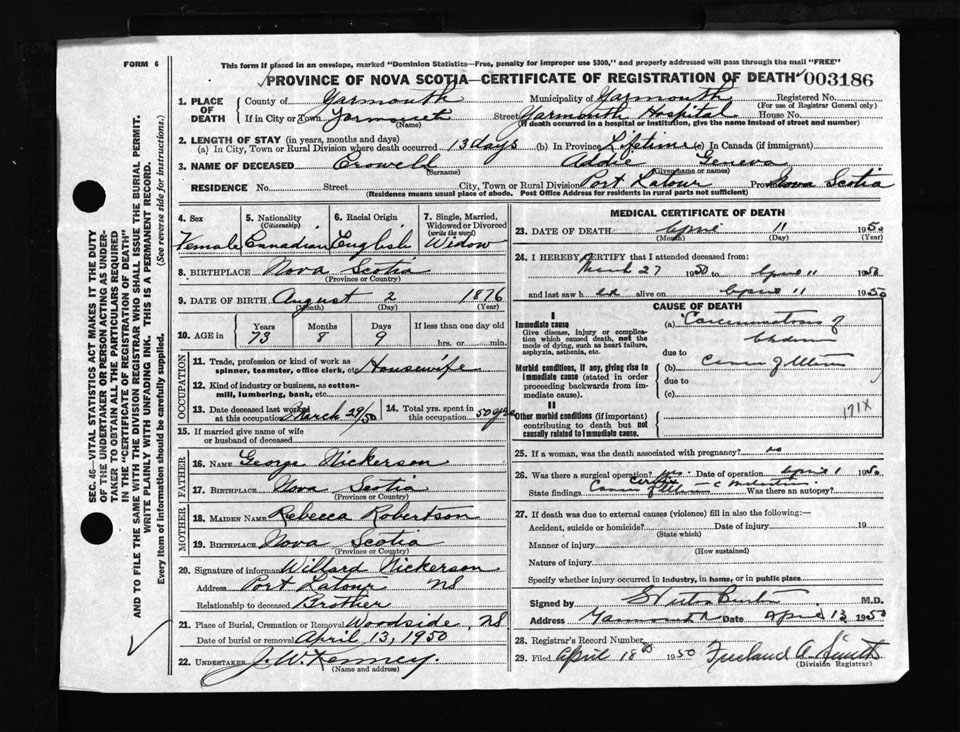 FORM 6
This form if placed in an envelope, marked "Dominion Statistics—Free, penalty for improper use $300," and properly addressed will pass through the mail "FREE"
PROVINCE OF NOVA SCOTIA—CERTIFICATE OF REGISTRATION OF DEATH 003186
1. PLACE OF DEATH County of Yarmouth Municipality of Yarmouth Registered No.
(For use of Registrar General only)
If in City or Town Yarmouth Street Yarmouth Hospital House No.
(Name) (If death occurred in a hospital or institution, give the name instead of street and number)
2. LENGTH OF STAY (in years, months and days)
(a) In City, Town or Rural Division where death occurred 13 days (b) in Province Lifetime (c) In Canada (if immigrant)
3. NAME OF DECEASED Crowell Addie Geneva
(Surname) (Given name or names)
RESIDENCE No. Street City, Town or Rural Division Port Latour Province Nova Scotia
(Residence means usual place of abode. Post Office Address for residents in rural parts not sufficient)
SEC. 46—VITAL STATISTICS ACT MAKES IT THE DUTY
OF THE UNDERTAKER OR PERSON ACTING AS UNDER-
TAKER TO OBTAIN ALL THE PARTICULARS REQUIRED
IN THE "CERTIFICATE OF REGISTRATION OF DEATH"
AND TO FILE THE SAME WITH THE DIVISION REGISTRAR WHO SHALL ISSUE THE BURIAL PERMIT.
WRITE PLAINLY WITH UNFADING INK. THIS IS A PERMANENT RECORD.
Every item of information should be carefully supplied. (See reverse side for instructions.)
4. Sex 5. Nationality (Citizenship) 6. Racial Origin 7. Single, Married, Widowed or Divorced (write the word)
Female Canadian English Widow
8. BIRTHPLACE Nova Scotia
(Province or Country)
9. DATE OF BIRTH August 2 1876
(Month) (Day) (Year)
10. AGE in Years Months Days If less than one day old
73 8 9 hrs. or min.
OCCUPATION
11. Trade, profession or kind of work as spinner, teamster, office clerk, etc. Housewife
12. Kind of industry or business, as cotton-mill, lumbering, bank, etc.
13. Date deceased last worked at this occupation March 29/50 14. Total yrs. spent in this occupation 50 yrs
15. If married give name of wife or husband of deceased
FATHER
16. NAME George Nickerson
17. BIRTHPLACE Nova Scotia
(Province or Country)
MOTHER
18. MAIDEN NAME Rebecca Robertson
19. BIRTHPLACE Nova Scotia
(Province or Country)
20. Signature of informant Willard Nickerson
Address Port Latour NS
Relationship to deceased Brother
21. Place of Burial, Cremation or Removal Woodside, NS
Date of burial or removal April 13, 1950
22. UNDERTAKER J. W. Kenney.
(Name and address)
MEDICAL CERTIFICATE OF DEATH
23. DATE OF DEATH April 11 1950
(Month) (Day) (Year)
24. I HEREBY CERTIFY that I attended deceased from:
March 27 1950 to April 11 1950
and last saw h er alive on April 11 1950
CAUSE OF DEATH
I
Immediate cause (a) Carcinomatosis of
Give disease, injury or complication which caused death, not the mode of dying, such as heart failure, asphyxia, asthenia, etc.
due to
Morbid conditions, if any, giving rise to immediate cause (stated in order proceeding backwards from immediate cause). (b)
due to
(c)
II
Other morbid conditions (if important) contributing to death but not causally related to immediate cause.
171X
25. If a woman, was the death associated with pregnancy? no
26. Was there a surgical operation? yes. Date of operation April 1 1950
State findings Was there an autopsy?
27. If death was due to external causes (violence) fill in also the following:—
Accident, suicide or homicide? Date of injury 19
(State which)
Manner of injury
(How sustained)
Nature of injury
Specify whether injury occurred in industry, in home, or in public place
Signed by M.D.
Address Yarmouth Date April 13 1950
28. Registrar's Record Number
29. Filed April 18th 1950 Freeland A. Smith
(Division Registrar)